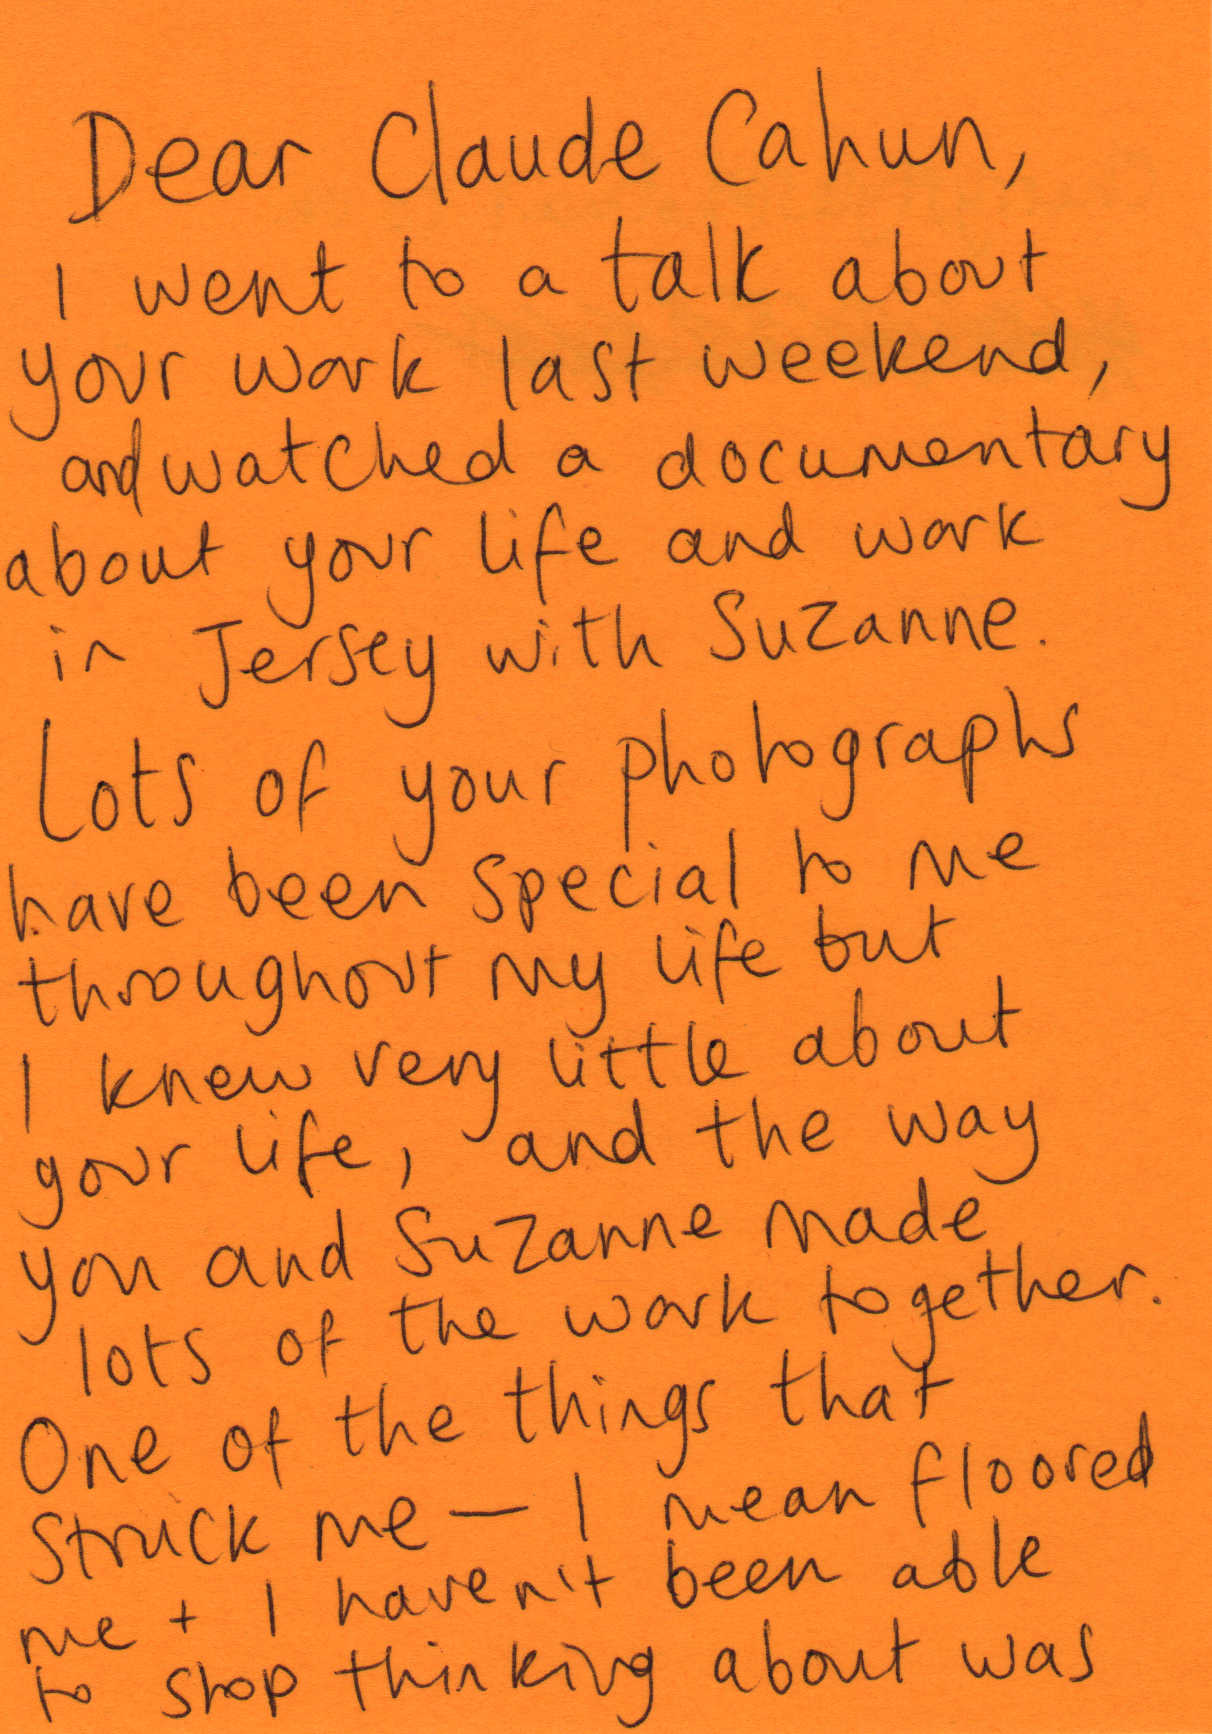 Dear Claude Cahun,
I went to a talk about
your work last weekend,
and watched a documentary
about your life and work
in Jersey with Suzanne.
Lots of your photographs
have been special to me
throughout my life but
I knew very little about
your life, and the way
you and Suzanne made
lots of the work together.
One of the things that
struck me — I mean floored
me + I haven't been able
to stop thinking about was